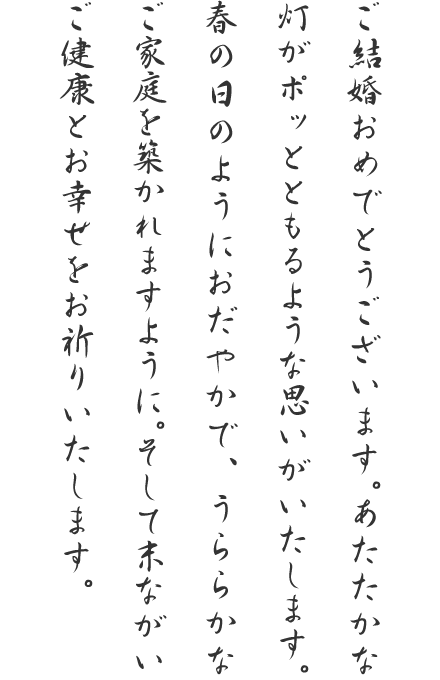 ご結婚おめでとうございます。あたたかな
灯がポッとともるような思いがいたします。
春の日のようにおだやかで、うららかな
ご家庭を築かれますように。そして末ながい
ご健康とお幸せをお祈りいたします。